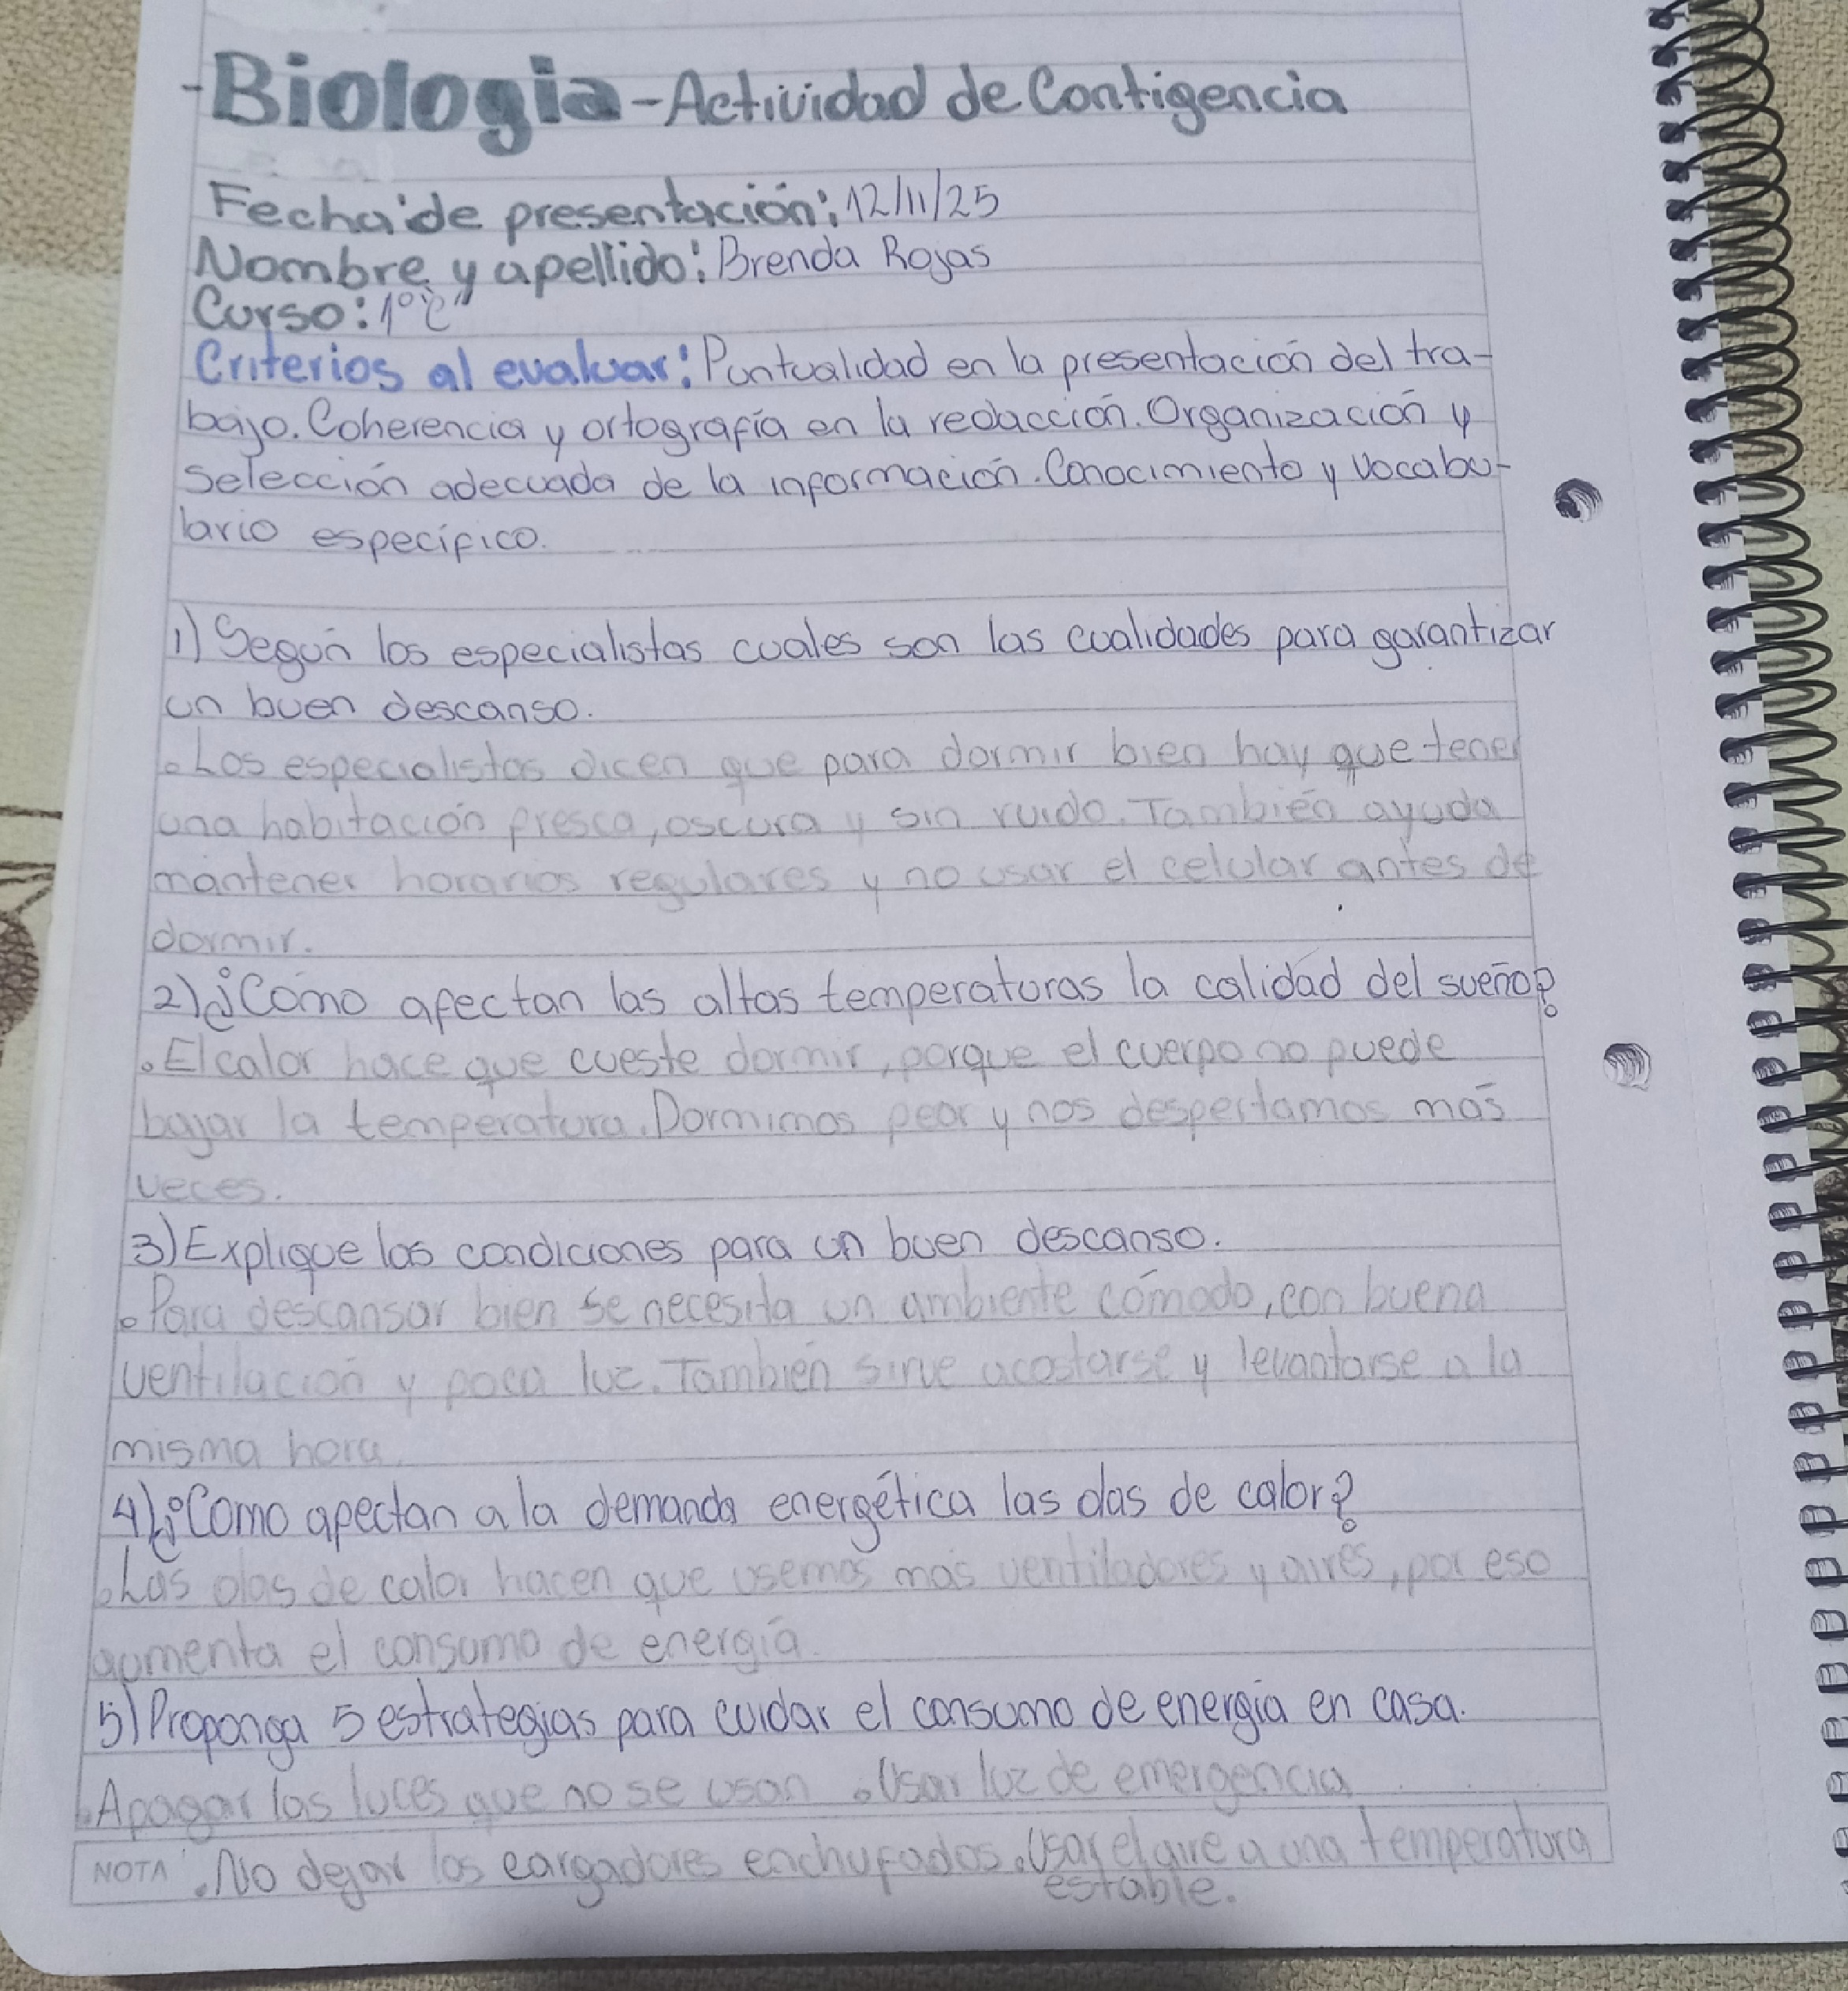 -Biologia-Actividad de Contigencia
Fecha de presentación: 12/11/25
Nombre y apellido: Brenda Rojas
Curso: 1° "C"
Criterios al evaluar: Puntualidad en la presentación del tra-
bajo. Coherencia y ortografía en la redacción. Organización y
selección adecuada de la información. Conocimiento y vocabu-
lario específico.
1) Según los especialistas cuales son las cualidades para garantizar
un buen descanso.
• Los especialistas dicen que para dormir bien hay que tener
una habitación fresca, oscura y sin ruido. También ayuda
mantener horarios regulares y no usar el celular antes de
dormir.
2) ¿Cómo afectan las altas temperaturas la calidad del sueño?
• El calor hace que cueste dormir, porque el cuerpo no puede
bajar la temperatura. Dormimos peor y nos despertamos más
veces.
3) Explique las condiciones para un buen descanso.
• Para descansar bien se necesita un ambiente cómodo, con buena
ventilación y poca luz. También sirve acostarse y levantarse a la
misma hora.
4) ¿Como afectan a la demanda energética las olas de calor?
• Las olas de calor hacen que usemos más ventiladores y aires, por eso
aumenta el consumo de energía.
5) Proponga 5 estrategias para cuidar el consumo de energía en casa.
• Apagar las luces que no se usan • Usar luz de emergencia
NOTA • No dejar los cargadores enchufados. • Usar el aire a una temperatura
estable.